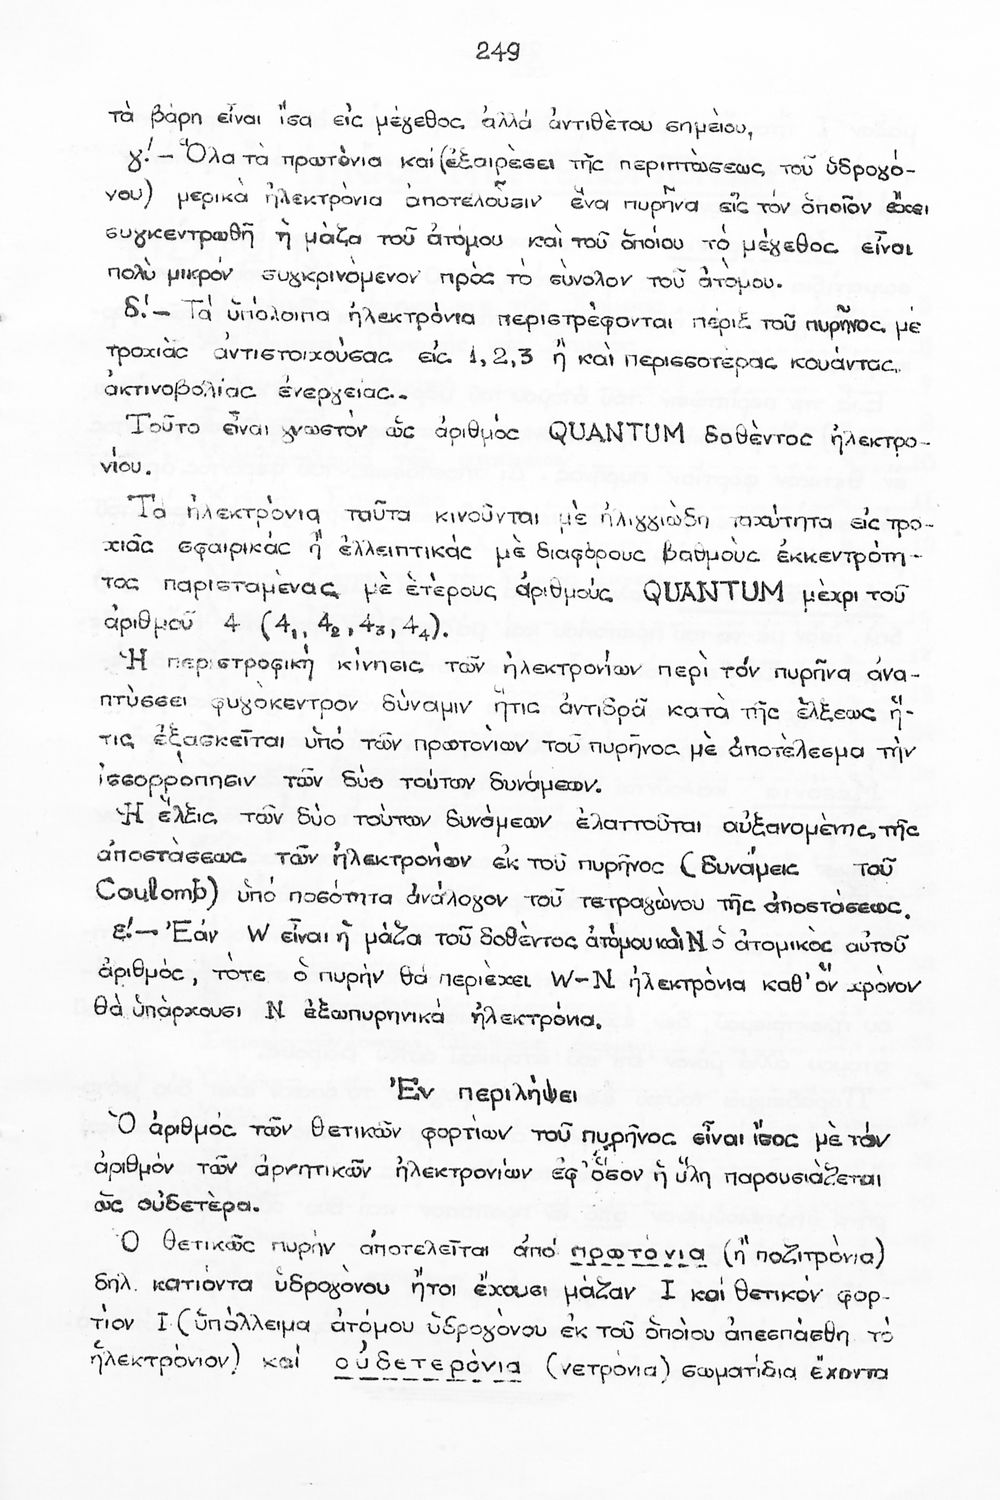 249
τὰ βάρη εἶναι ἴσα εἰς μέγεθος ἀλλά ἀντιθέτου σημείου,
γ!— Ὅλα τὰ πρωτόνια καί (ἐξαιρέσει τῆς περιπτώσεως τοῦ ὑδρογό-
νου) μερικὰ ἠλεκτρόνια ἀποτελοῦσιν ἕνα πυρῆνα εἰς τόν ὁποῖον ἔχει
συγκεντρωθῆ ἡ μάζα τοῦ ἀτόμου καὶ τοῦ ὁποίου τό μέγεθος εἶναι
πολύ μικρόν συγκρινόμενον πρός τό σύνολον τοῦ ἀτόμου.
δ!— Τά ὑπόλοιπα ἠλεκτρόνια περιστρέφονται πέριξ τοῦ πυρῆνος μέ
τροχιάς ἀντιστοιχούσας εἰς 1,2,3 ἤ καί περισσοτέρας κουάντας
ἀκτινοβολίας ἐνεργείας..
Τοῦτο εἶναι γνωστόν ὡς ἀριθμός QUANTUM δοθέντος ἠλεκτρο-
νίου.
Τά ἠλεκτρόνια ταῦτα κινοῦνται μέ ἠλιγγιώδη ταχύτητα εἰς τρο-
χιάς σφαιρικάς ἤ ἐλλειπτικάς μέ διαφόρους βαθμούς ἐκκεντρότη-
τος παρισταμένας μέ ἑτέρους ἀριθμούς QUANTUM μέχρι τοῦ
ἀριθμοῦ 4 (4₁, 4₂, 4₃, 4₄).
Ἡ περιστροφική κίνησις τῶν ἠλεκτρονίων περί τόν πυρῆνα ἀνα-
πτύσσει φυγόκεντρον δύναμιν ἥτις ἀντιδρᾶ κατά τῆς ἕλξεως ἥ-
τις ἐξασκεῖται ὑπό τῶν πρωτονίων τοῦ πυρῆνος μέ ἀποτέλεσμα τήν
ἰσσορρόπησιν τῶν δύο τούτων δυνάμεων.
Ἡ ἕλξις τῶν δύο τούτων δυνάμεων ἐλαττοῦται αὐξανομένης τῆς
ἀποστάσεως τῶν ἠλεκτρονίων ἐκ τοῦ πυρῆνος (δυνάμεις τοῦ
Coulomb) ὑπό ποσότητα ἀνάλογον τοῦ τετραγώνου τῆς ἀποστάσεως.
ε!— Ἐάν W εἶναι ἡ μάζα τοῦ δοθέντος ἀτόμου καί N ὁ ἀτομικός αὐτοῦ
ἀριθμός, τότε ὁ πυρήν θά περιέχει W-N ἠλεκτρόνια καθ' ὅν χρόνον
θά ὑπάρχουσι N ἐξωπυρηνικά ἠλεκτρόνια.
Ἐν περιλήψει
Ὁ ἀριθμός τῶν θετικῶν φορτίων τοῦ πυρῆνος εἶναι ἴσος μέ τόν
ἀριθμόν τῶν ἀρνητικῶν ἠλεκτρονίων ἐφ' ὅσον ἡ ὕλη παρουσιάζεται
ὡς οὐδετέρα.
Ὁ θετικῶς πυρήν ἀποτελεῖται ἀπό πρωτόνια (ἤ ποζιτρόνια)
δηλ. κατιόντα ὑδρογόνου ἤτοι ἔχουσι μάζαν I καί θετικόν φορ-
τίον I (ὑπόλλειμα ἀτόμου ὑδρογόνου ἐκ τοῦ ὁποίου ἀπεσπάσθη τό
ἠλεκτρόνιον) καί οὐδετερόνια (νετρόνια) σωματίδια ἔχοντα